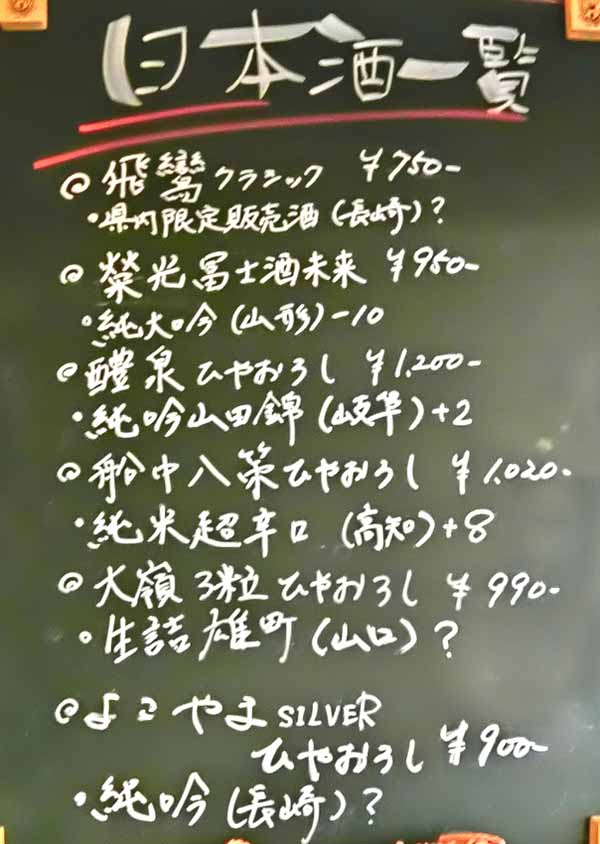 日本酒一覧
◎飛鸞クラシック ¥750-
・県内限定販売酒(長崎)?
◎榮光冨士酒未来 ¥950-
・純大吟(山形)-10
◎醴泉ひやおろし ¥1,200-
・純吟山田錦(岐阜)+2
◎船中八策ひやおろし ¥1,020-
・純米超辛口(高知)+8
◎大嶺3粒ひやおろし ¥990-
・生詰雄町(山口)?
◎よこやまSILVER
ひやおろし ¥900-
・純吟(長崎)?